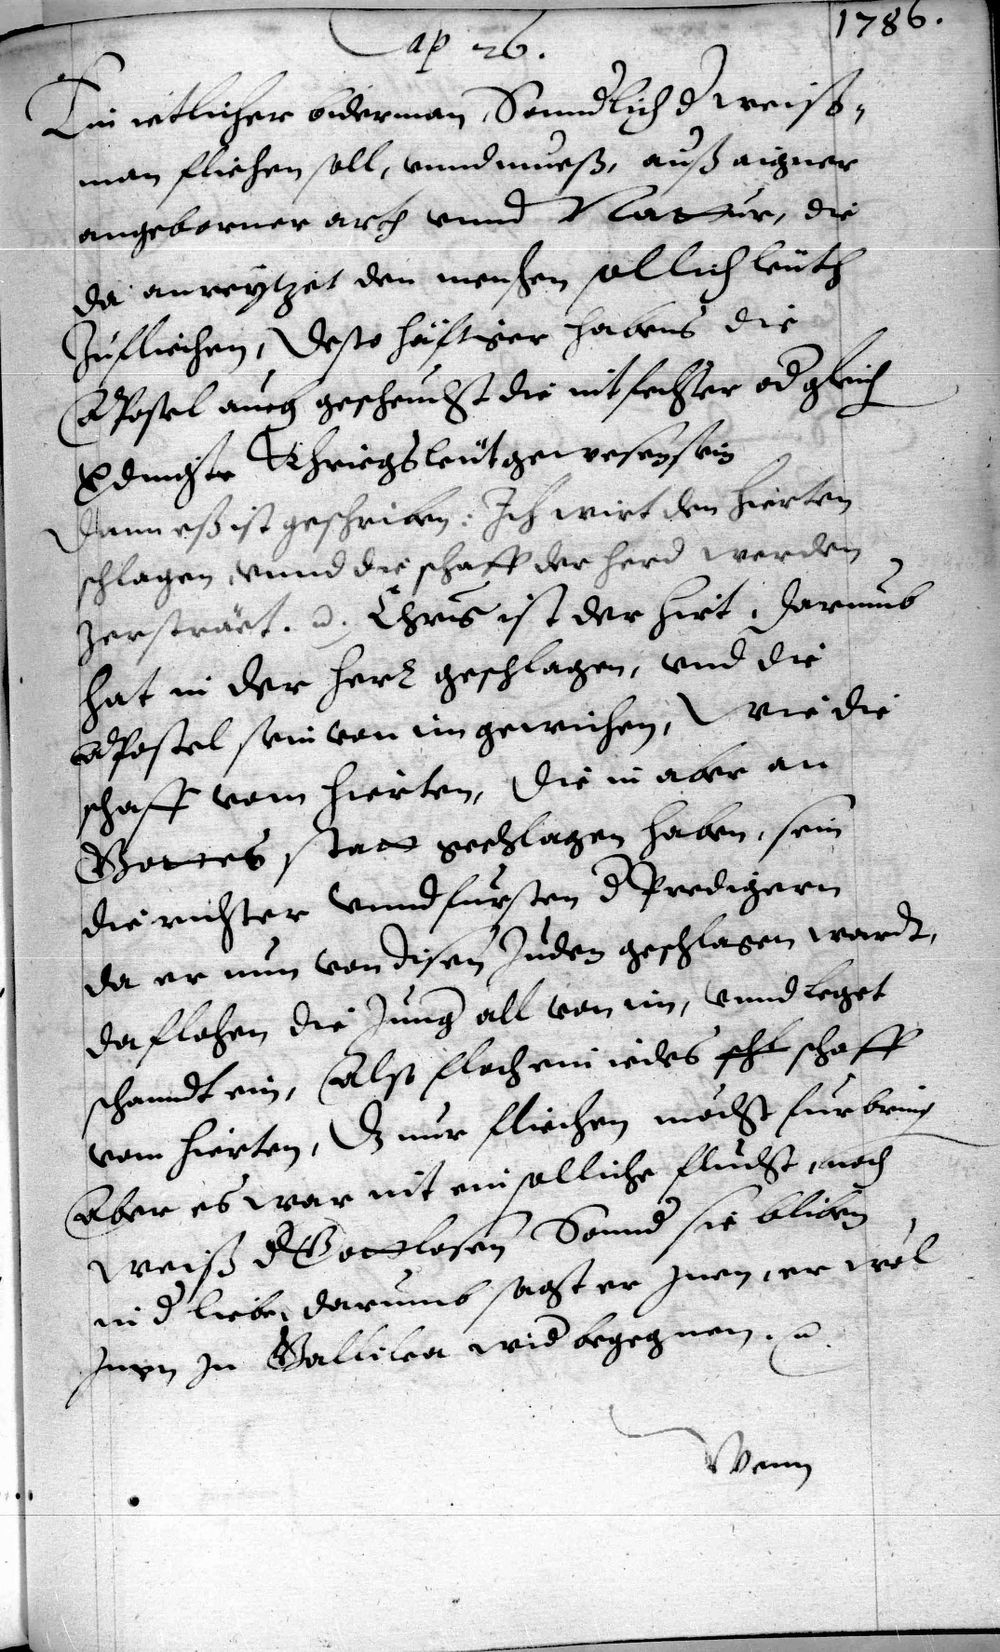 Cap 26. 1786.
Ein ietlicher biderman, Sonnd̄lich d̄ weiß-
man fliehen soll, vnnd mueß, auß aigner
angeborner arth vnnd Nattur, die
da anreytzet den menschen sollich leüth
Zufliehen, desto häfftiger habens die
APostel auch geschеucht die nit fechter od̄ gleich
Khriegsleüt gewesen sein
Dann eß ist geschriben: Ich wirt den hierten
schlagen, vnnd die schaff der herd werden
zersträet. Chrūs ist der hirt, darumb
hat in der herr geschlagen, vnd die
APostel sein von im gewichen, wie die
schaff vom hierten, die in aber an
Gottes statt geschlagen haben, sein
die richter vnnd fursten d̄ Predigern
da er nun von disen Juden geschlagen wardt,
da flohen die Junḡ all von im, vnnd leget
schanndt ein, Also floch ein iedes schaff
vom hierten, Dz nur fliechen möcht furbring
Aber es war nit ein solliche flucht, nach
weiß d̄ Gottlosen Sonnd̄ sie bliben
in d̄ liebe, darumb sagt er Inen, er wöl
Inen in Gallilea wid̄ begegnen.
Wenn